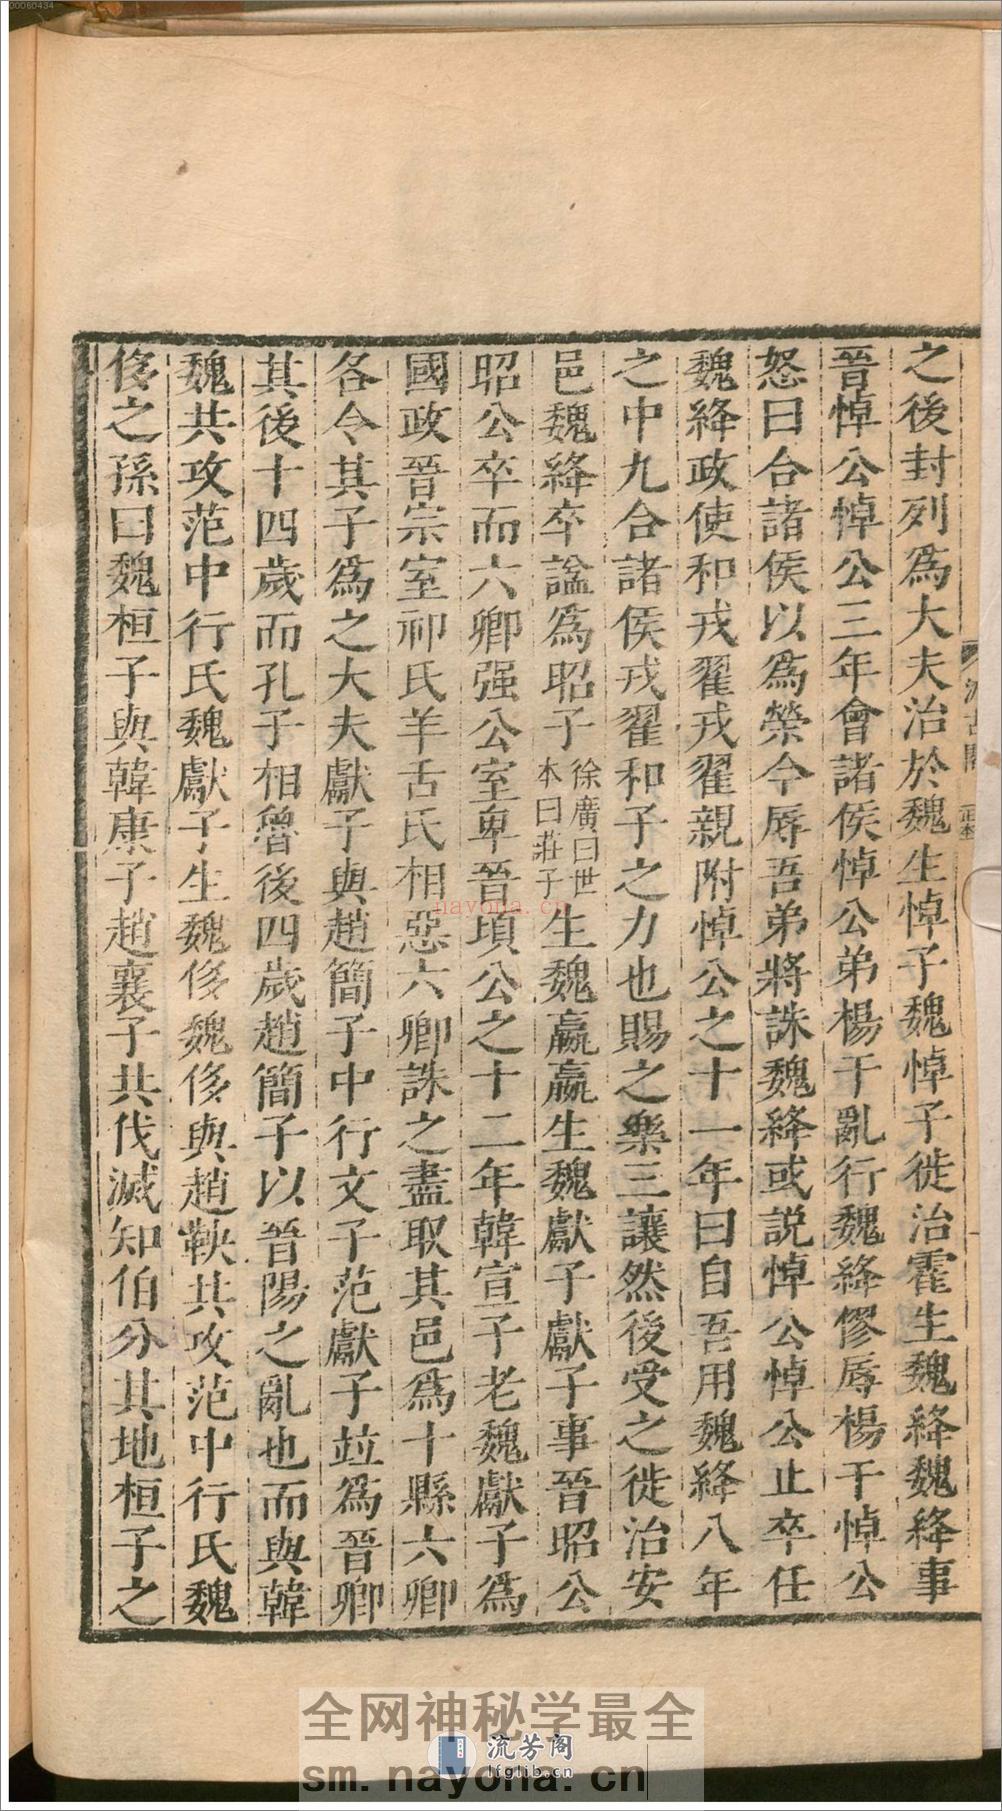 之後封列為大夫治於魏生悼子魏悼子徙治霍生魏絳魏絳事
晉悼公悼公三年會諸侯悼公弟楊干亂行魏絳僇辱楊干悼公
怒曰合諸侯以為榮今辱吾弟將誅魏絳或説悼公悼公止卒任
魏絳政使和戎翟戎翟親附悼公之十一年曰自吾用魏絳八年
之中九合諸侯戎翟和子之力也賜之樂三讓然後受之徙治安
邑魏絳卒諡為昭子徐廣曰世本曰莊子生魏嬴嬴生魏獻子獻子事晉昭公
昭公卒而六卿强公室卑晉頃公之十二年韓宣子老魏獻子為
國政晉宗室祁氏羊舌氏相惡六卿誅之盡取其邑為十縣六卿
各令其子為之大夫獻子與趙簡子中行文子范獻子竝為晉卿
其後十四歲而孔子相魯後四歲趙簡子以晉陽之亂也而與韓
魏共攻范中行氏魏獻子生魏侈魏侈與趙鞅共攻范中行氏魏
侈之孫曰魏桓子與韓康子趙襄子共伐滅知伯分其地桓子之
00060434
nayona.cn
全网神秘学最全
流芳阁
lfglib.cn
sm.nayona.cn